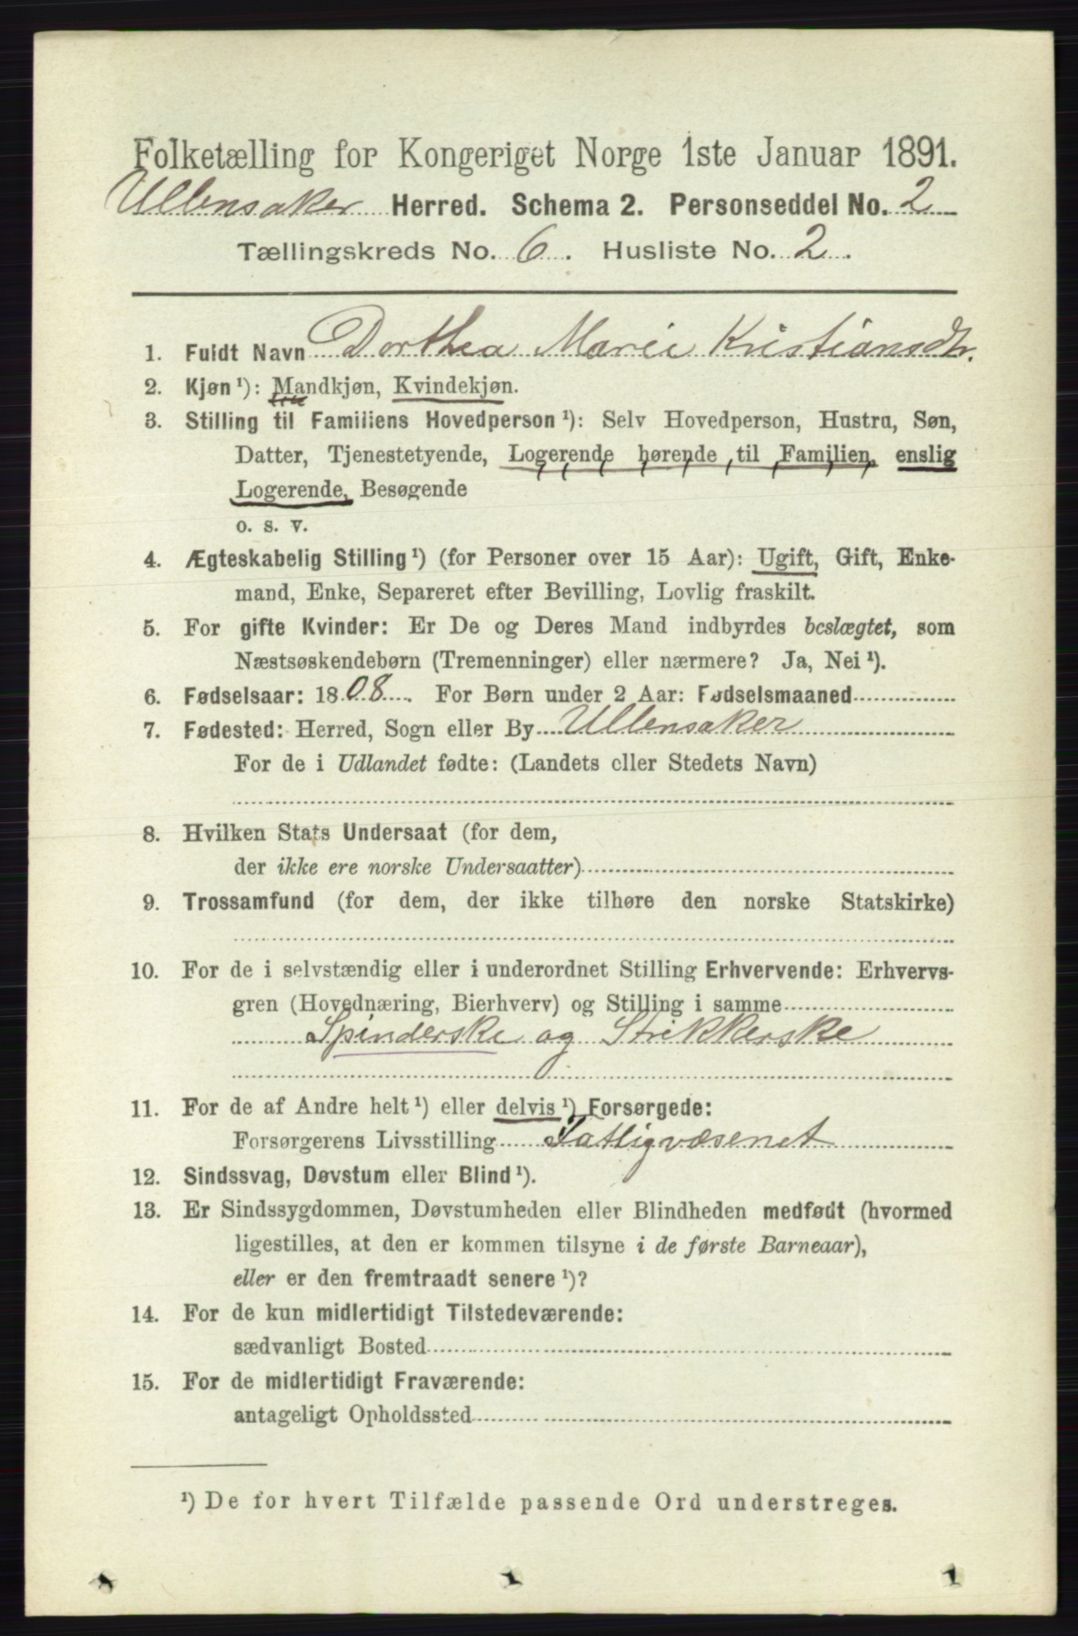 Folketælling for Kongeriget Norge 1ste Januar 1891.
Ullensaker Herred. Schema 2. Personseddel No. 2
Tællingskreds No. 6. Husliste No. 2.
1. Fuldt Navn Dorthea Marie Kristiansdtr.
2. Kjøn ¹): Mandkjøn, Kvindekjøn.
3. Stilling til Familiens Hovedperson ¹): Selv Hovedperson, Hustru, Søn,
Datter, Tjenestetyende, Logerende hørende til Familien, enslig
Logerende, Besøgende
o. s. v.
4. Ægteskabelig Stilling ¹) (for Personer over 15 Aar): Ugift, Gift, Enke-
mand, Enke, Separeret efter Bevilling, Lovlig fraskilt.
5. For gifte Kvinder: Er De og Deres Mand indbyrdes beslægtet, som
Næstsøskendebørn (Tremenninger) eller nærmere? Ja, Nei ¹).
6. Fødselsaar: 1808. For Børn under 2 Aar: Fødselsmaaned
7. Fødested: Herred, Sogn eller By Ullensaker
For de i Udlandet fødte: (Landets eller Stedets Navn)
8. Hvilken Stats Undersaat (for dem,
der ikke ere norske Undersaatter)
9. Trossamfund (for dem, der ikke tilhøre den norske Statskirke)
10. For de i selvstændig eller i underordnet Stilling Erhvervende: Erhvervs-
gren (Hovednæring, Bierhverv) og Stilling i samme
Spinderske og Strikkerske
11. For de af Andre helt ¹) eller delvis ¹) Forsørgede:
Forsørgerens Livsstilling Fattigvæsenet
12. Sindssvag, Døvstum eller Blind ¹).
13. Er Sindssygdommen, Døvstumheden eller Blindheden medfødt (hvormed
ligestilles, at den er kommen tilsyne i de første Barneaar),
eller er den fremtraadt senere ¹)?
14. For de kun midlertidigt Tilstedeværende:
sædvanligt Bosted
15. For de midlertidigt Fraværende:
antageligt Opholdssted
¹) De for hvert Tilfælde passende Ord understreges.